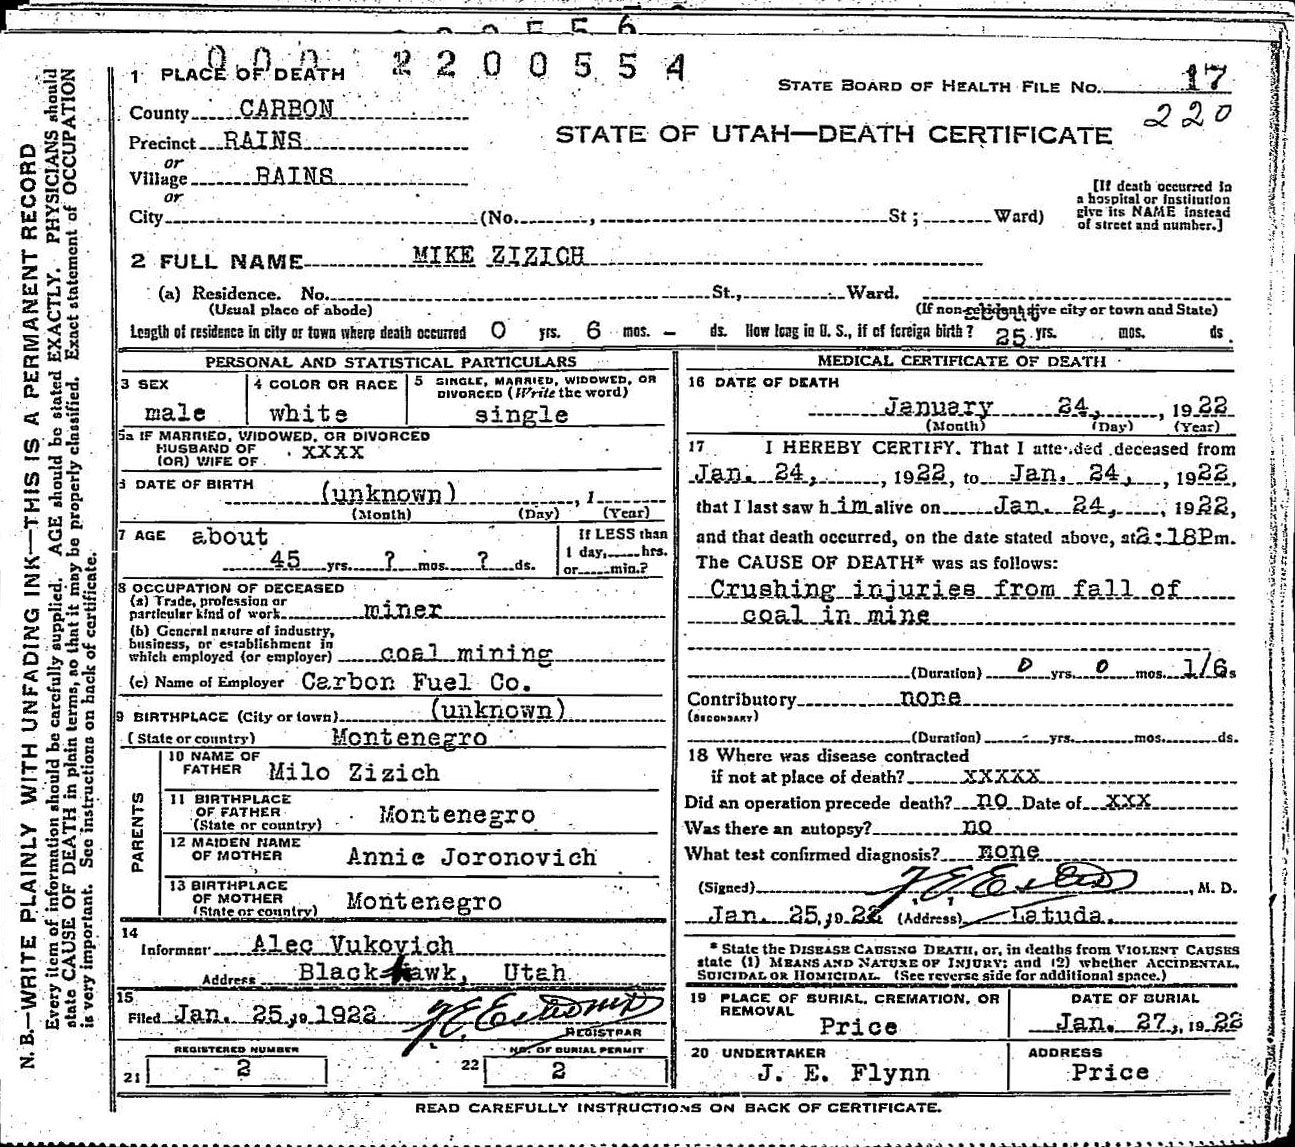 000 2200554
1 PLACE OF DEATH
STATE BOARD OF HEALTH FILE NO. 17
220
County CARBON
STATE OF UTAH—DEATH CERTIFICATE
Precinct RAINS
or
Village RAINS
or
[If death occurred in
a hospital or institution
give its NAME instead
of street and number.]
City (No. , St; Ward)
2 FULL NAME MIKE ZIZICH
(a) Residence. No. St., Ward.
(Usual place of abode) (If non-resident give city or town and State)
about
Length of residence in city or town where death occurred 0 yrs. 6 mos. - ds. How long in U. S., if of foreign birth? 25 yrs. mos. ds.
PERSONAL AND STATISTICAL PARTICULARS
3 SEX
male
4 COLOR OR RACE
white
5 SINGLE, MARRIED, WIDOWED, OR
DIVORCED (Write the word)
single
5a IF MARRIED, WIDOWED, OR DIVORCED
HUSBAND OF
(OR) WIFE OF
XXXX
6 DATE OF BIRTH
(unknown) , 1
(Month) (Day) (Year)
7 AGE about
45 yrs. ? mos. ? ds.
If LESS than
1 day, hrs.
or min.?
8 OCCUPATION OF DECEASED
(a) Trade, profession or
particular kind of work miner
(b) General nature of industry,
business, or establishment in
which employed (or employer) coal mining
(c) Name of Employer Carbon Fuel Co.
9 BIRTHPLACE (City or town) (unknown)
(State or country) Montenegro
PARENTS
10 NAME OF
FATHER Milo Zizich
11 BIRTHPLACE
OF FATHER
(State or country) Montenegro
12 MAIDEN NAME
OF MOTHER Annie Joronovich
13 BIRTHPLACE
OF MOTHER
(State or country) Montenegro
14
Informer Alec Vukovich
Address Black hawk, Utah
15
Filed Jan. 25, 19 1922
REGISTRAR
REGISTERED NUMBER
21 2
NO. OF BURIAL PERMIT
22 2
MEDICAL CERTIFICATE OF DEATH
16 DATE OF DEATH
January 24, , 1922
(Month) (Day) (Year)
17 I HEREBY CERTIFY. That I attended deceased from
Jan. 24, , 1922, to Jan. 24, , 1922,
that I last saw him alive on Jan. 24, , 1922,
and that death occurred, on the date stated above, at 2:18P m.
The CAUSE OF DEATH* was as follows:
Crushing injuries from fall of
coal in mine
(Duration) 0 yrs. 0 mos. 1/6 s
Contributory none
(SECONDARY)
(Duration) yrs. mos. ds.
18 Where was disease contracted
if not at place of death? XXXXX
Did an operation precede death? no Date of XXX
Was there an autopsy? no
What test confirmed diagnosis? none
(Signed) , M. D.
Jan. 25, 1922 (Address) Latuda.
* State the DISEASE CAUSING DEATH, or, in deaths from VIOLENT CAUSES
state (1) MEANS AND NATURE OF INJURY; and (2) whether ACCIDENTAL,
SUICIDAL OR HOMICIDAL. (See reverse side for additional space.)
19 PLACE OF BURIAL, CREMATION, OR
REMOVAL
Price
DATE OF BURIAL
Jan. 27, , 1922
20 UNDERTAKER
J. E. Flynn
ADDRESS
Price
READ CAREFULLY INSTRUCTIONS ON BACK OF CERTIFICATE.
N. B.—WRITE PLAINLY WITH UNFADING INK—THIS IS A PERMANENT RECORD
Every item of information should be carefully supplied. AGE should be stated EXACTLY. PHYSICIANS should
state CAUSE OF DEATH in plain terms, so that it may be properly classified. Exact statement of OCCUPATION
is very important. See instructions on back of certificate.